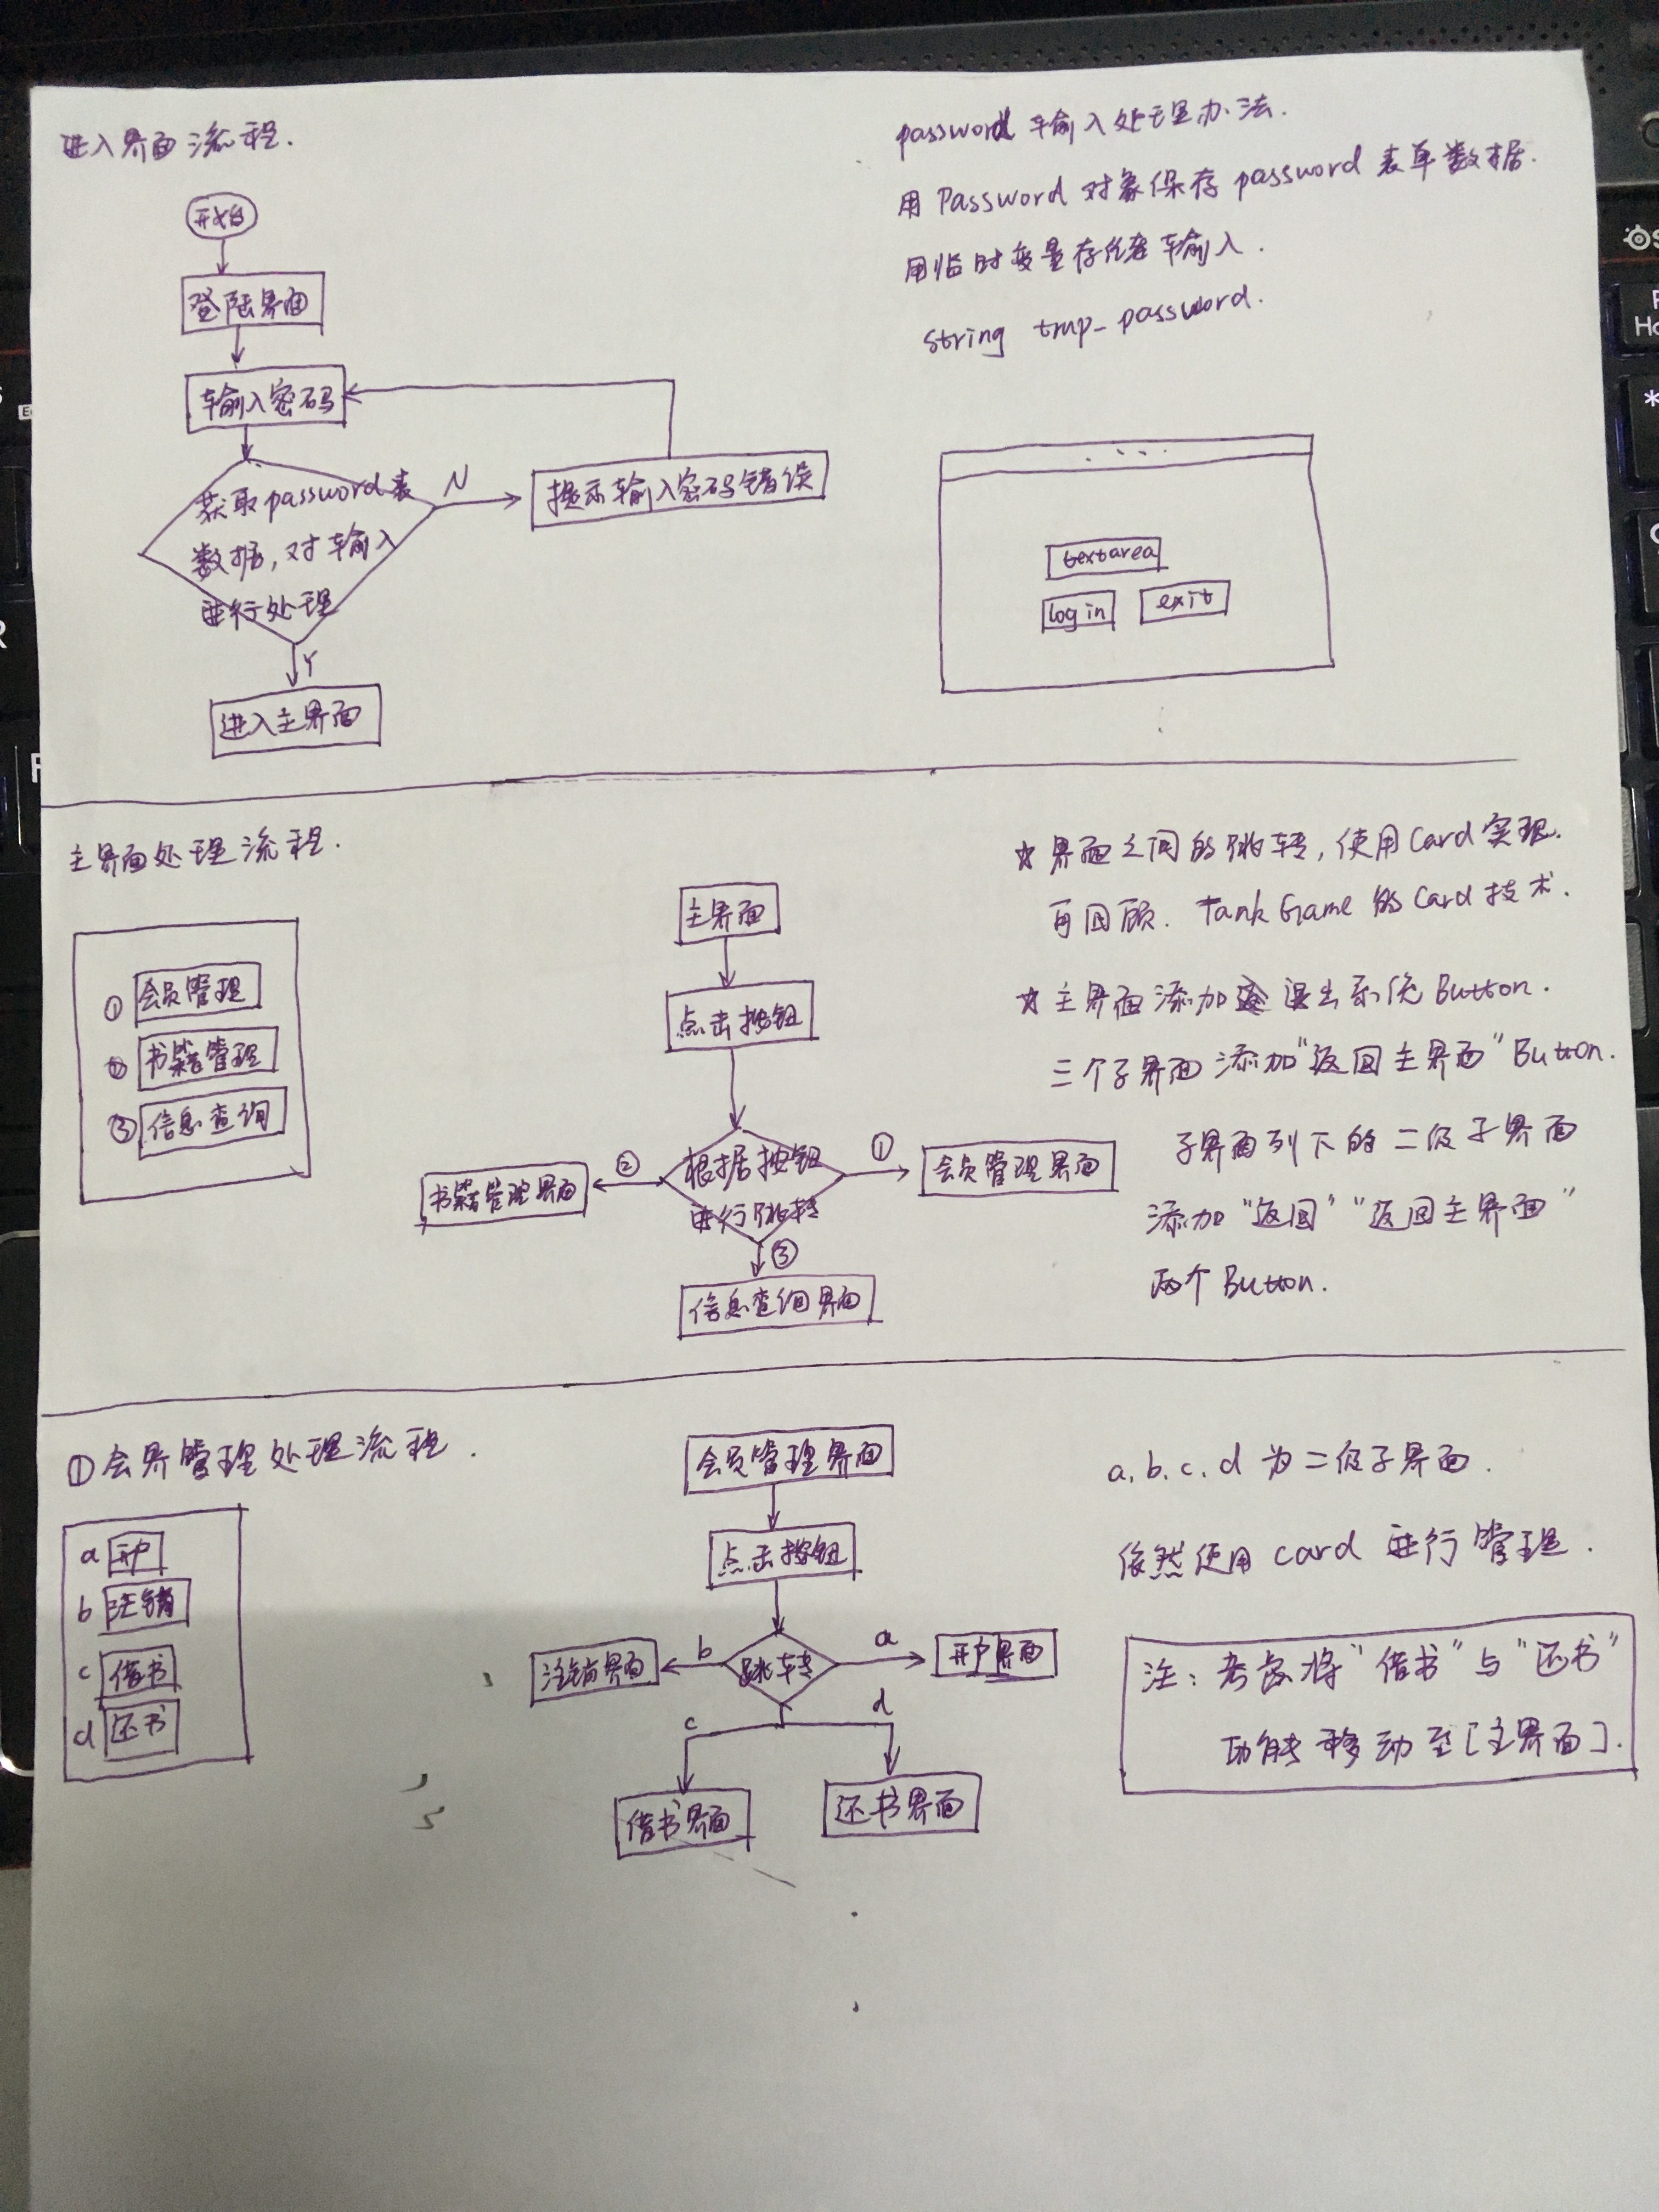 进入界面流程.
开始
登陆界面
输入密码
获取password表
数据,对输入
进行处理
N
提示输入密码错误
Y
进入主界面
password 输入处理办法.
用 Password 对象保存 password 表单数据.
用临时变量存储输入.
string tmp_password.
...
textarea
log in
exit
主界面处理流程.
① 会员管理
② 书籍管理
③ 信息查询
主界面
点击按钮
根据按钮
进行跳转
①
会员管理界面
②
书籍管理界面
③
信息查询界面
☆ 界面之间的跳转,使用Card实现.
再回顾. Tank Game 的 Card 技术.
☆ 主界面添加 退出系统 Button.
三个子界面添加"返回主界面" Button.
子界面列下的二级子界面
添加"返回" "返回主界面"
两个 Button.
①会界管理处理流程.
a 开户
b 注销
c 借书
d 还书
会员管理界面
点击按钮
跳转
a
开户界面
b
注销界面
c
借书界面
d
还书界面
a.b.c.d 为二级子界面.
依然使用 card 进行管理.
注: 考虑将"借书"与"还书"
功能移动至[主界面].